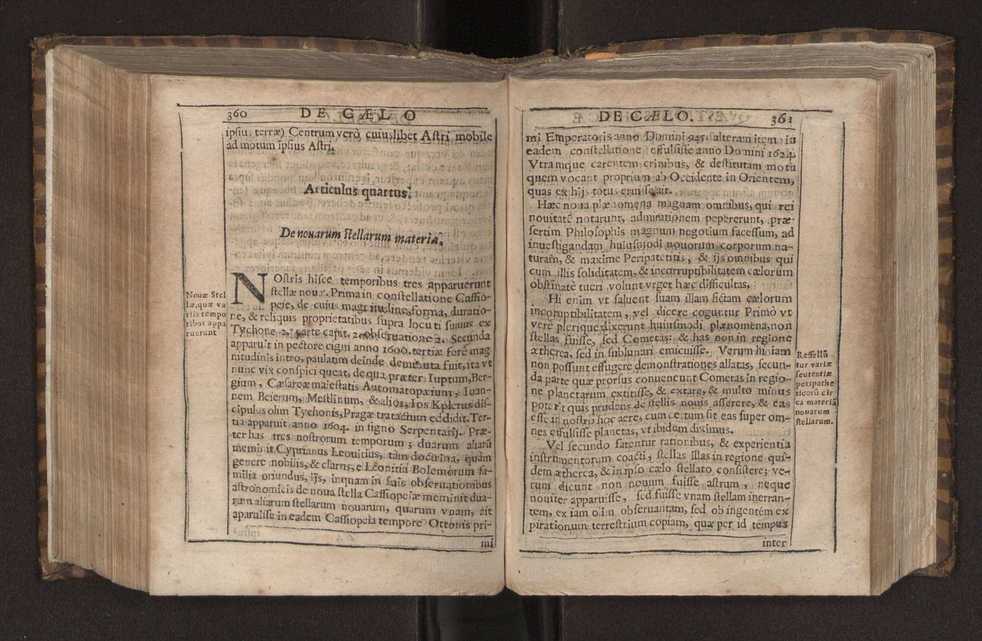 360 DE CÆLO
ipsiu. terræ) Centrum verò cuiuslibet Astri mobile
ad motum ipsius Astri.
Articulus quartus.
De nouarum stellarum materia.
Nouæ Stel
læ, quæ va
riis tempo
ribus appa
ruerunt
NOstris hisce temporibus tres apparuerunt
stellæ nouæ. Prima in constellatione Cassio-
peiæ, de cuius magnitudine, forma, duratio-
ne, & reliquis proprietatibus supra locuti sumus ex
Tychone 2. parte capit. 2. obseruatione 2. Secunda
apparuit in pectore cigni anno 1600. tertiæ ferè mag
nitudinis intro, paulatim deinde deminuta fuit, ita vt
nunc vix conspici queat, de qua præter Iuptum, Ber-
gium, Cæsareæ maiestatis Automatopæum, Ioan-
nem Beierum, Mestlinum, & alios, Ios Kplerus dis-
cipulus olim Tychonis, Pragæ tractatum eddidit. Ter-
tia apparuit anno 1604. in signo Serpentarij. Præ-
ter has tres nostrorum temporum; duarum aliarũ
meminit Cyprianus Leouicius, tàm doctrina, quàm
genere nobilis, & clarus, e Leonitia Bolemorum fa-
milia oriundus, ijs, inquam in suis obseruationibus
astronomicis de noua stella Cassiopeiæ meminit dua-
rum aliarum stellarum nouarum, quarum vnam, ait
aparuisse in eadem Cassiopeia tempore Ottonis pri-
mi
DE CÆLO. 361
mi Emperatoris anno Domini 945. alteram item in
eadem constellatione effulsisse anno Domini 1624.
Vtramque carentem crinibus, & destitutam motu
quem vocant proprium ab Occidente in Orientem,
quas ex hij totus
Hæc noua phænomena magnam omnibus, qui rei
nouitatẽ notarunt, admirationem pepererunt, præ-
sertim Philosophis magnum negotium facessum, ad
inuestigandam huiusmodi nouorum corporum na-
turam, & maxime Peripateticis, & ijs omnibus qui
cum illis soliditatem, & incorruptibilitatem cælorum
obstinatè tueri volunt vrget hæc difficultas.
Hi enim vt saluent suam illam fictam cælorum
incorruptibilitatem, vel dicere coguntur Primò vt
verè plerique dixerunt huiusmodi phænomena, non
stellas fuisse, sed Cometas: & has non in regione
ætherea, sed in sublunari emicuisse. Verum hi iam
non possunt effugere demonstrationes allatas, secun-
da parte quæ prorsus conuencunt Cometas in regio-
ne planetarum extitisse, & extare, & multo minus
poterit quis prudens de stellis nouis asserere, & eas
esse in nostro hoc aere, cum certum sit eas super om-
nes effulsisse planetas, vt ibidem diximus.
Vel secundo fatentur rationibus, & experientia
instrumentorum coacti, stellas illas in regione qui-
dem ætherea, & in ipso cælo stellato consistere; ve-
rum dicunt non nouum fuisse astrum, neque
nouiter apparuisse, sed fuisse vnam stellam inerran-
tem, ex iam olim obseruantam, sed ob ingentem ex
pirationum terrestrium copiam, quæ per id tempus
inter
Refellũ
tur variæ
sententiæ
peripathe
ticorũ cir
ca materiã
nouarum
stellarum.